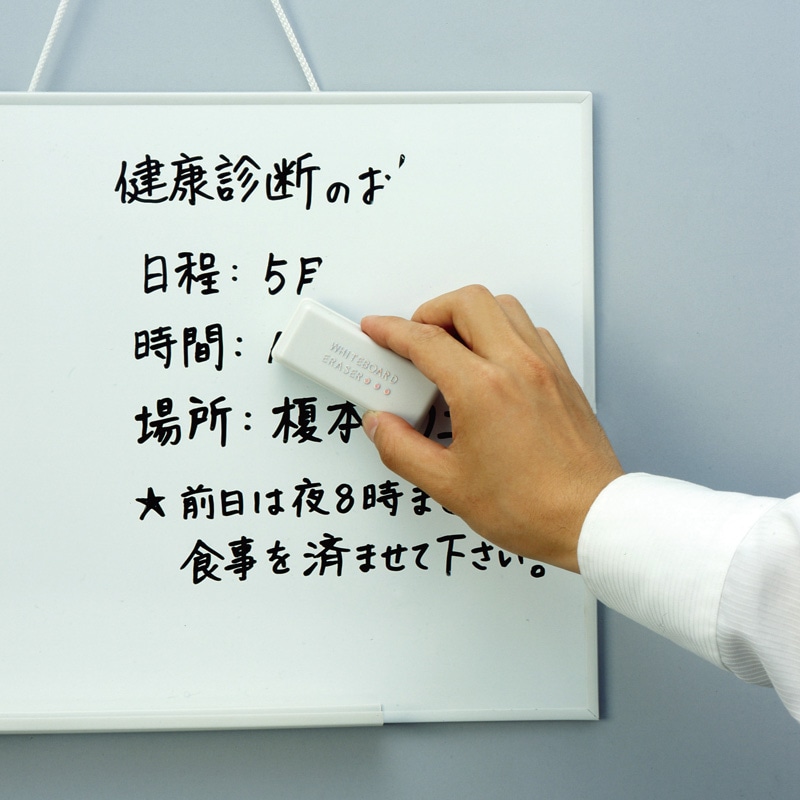 健康診断のお
日程：5月
時間：
場所：榎本
★前日は夜8時ま
食事を済ませて下さい。
WHITEBOARD
ERASER